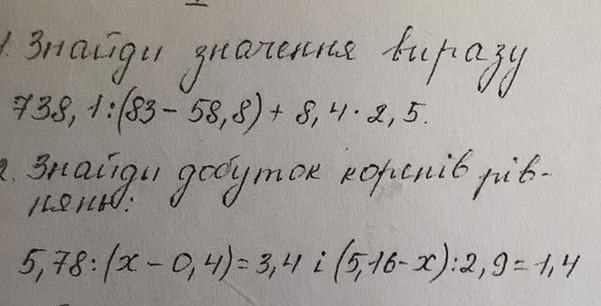 1. Знайди значення виразу
738,1:(83-58,8)+8,4·2,5.
2. Знайди добуток коренів рів-
нянь:
5,78:(х-0,4)=3,4 і (5,16-х):2,9=1,4